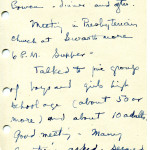 Cowan - dinner and
Meeting in Presbyterian
church at Swarthmore
6 P.M. Supper -
Talked to pic group
of boys and girls high
school age (about 50 or
more) and about 10 adults.
Good meeting - Many
asked